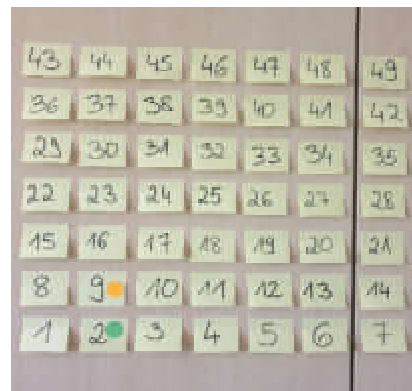 43 44 45 46 47 48 49
36 37 38 39 40 41 42
29 30 31 32 33 34 35
22 23 24 25 26 27 28
15 16 17 18 19 20 21
8 9 10 11 12 13 14
1 2 3 4 5 6 7